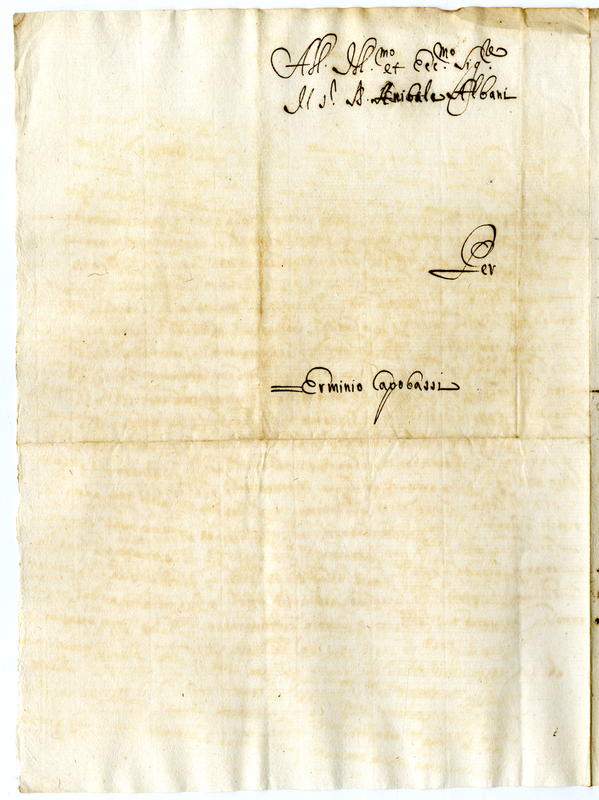 All. Ill.mo et Ecc.mo Sig.re
Il s.r D. Anibale Albani
Per
Erminio Capobassi